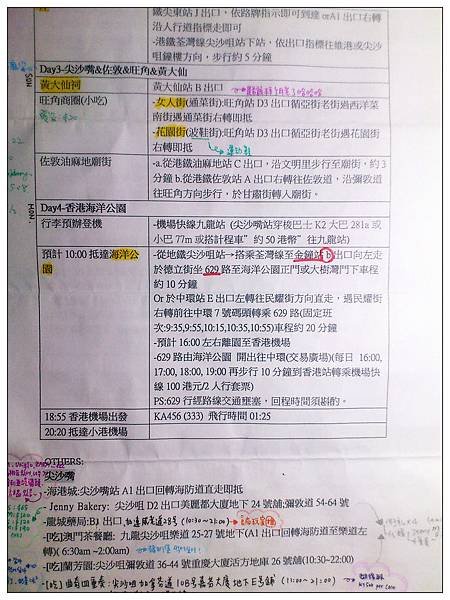 鐵尖東站 J 出口，依路牌指示即可到達 orA1 出口右轉
沿人行道指標走即可
-港鐵荃灣線尖沙咀站下站，依出口指標往維港或尖沙
咀鐘樓方向，步行約 5 分鐘
Day3-尖沙嘴&佐敦&旺角&黃大仙
黃大仙祠
黃大仙站 B 出口
旺角商圈(小吃)
-女人街(通菜街)旺角站 D3 出口循亞街老街過西洋菜
南街遇通菜街右轉即抵
-花園街(波鞋街)旺角站 D3 出口循亞街老街遇花園街
右轉即抵
佐敦油麻地廟街
-a.從港鐵油麻地站 C 出口，沿文明里步行至廟街，約 3
分鐘 b.從港鐵佐敦站 A 出口右轉往佐敦道，沿彌敦道
往旺角方向步行，於甘肅街轉入廟街。
Day4-香港海洋公園
行李預辦登機
-機場快線九龍站 (尖沙嘴站穿梭巴士 K2 大巴 281a 或
小巴 77m 或搭計程車" 約 50 港幣" 往九龍站)
預計 10:00 抵達海洋公
園
-從地鐵尖沙咀站→搭乘荃灣線至金鐘站 b 出口向左走
於德立街坐 629 路至海洋公園正門或大樹灣門下車程
約 10 分鐘
Or 於中環站 E 出口左轉往民耀街方向直走，遇民耀街
右轉前往中環 7 號碼頭轉乘 629 路(固定班
次:9:35,9:55,10:15,10:35,10:55)車程約 20 分鐘
-預計 16:00 左右離園至香港機場
-629 路由海洋公園 開出往中環(交易廣場)(每日 16:00,
17:00, 18:00, 19:00 再步行 10 分鐘到香港站轉乘機場快
線 100 港元/2 人行套票)
PS:629 行經路線交通壅塞，回程時間須斟酌。
18:55 香港機場出發
KA456 (333) 飛行時間 01:25
20:20 抵達小港機場
OTHERS:
尖沙嘴
-海港城:尖沙嘴站 A1 出口回轉海防道直走即抵
- Jenny Bakery: 尖沙咀 D2 出口美麗都大廈地下 24 號舖;彌敦道 54-64 號
-龍城藥局:B1 出口, 加連威老道28号 (10:30~21:00)
-[吃]澳門茶餐廳: 九龍尖沙咀樂道 25-27 號地下(A1 出口回轉海防道至樂道左
轉)( 6:30am ~2:00am)
-[吃]蘭芳園:尖沙咀彌敦道 36-44 號重慶大廈活方地庫 26 號舖(10:30~22:00)